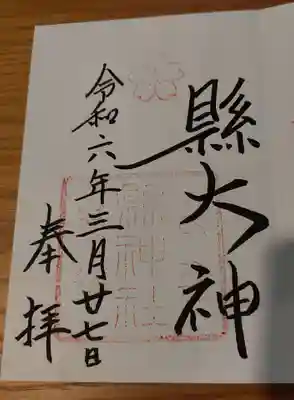 縣大神
令和六年三月廿七日
奉拝
縣神社